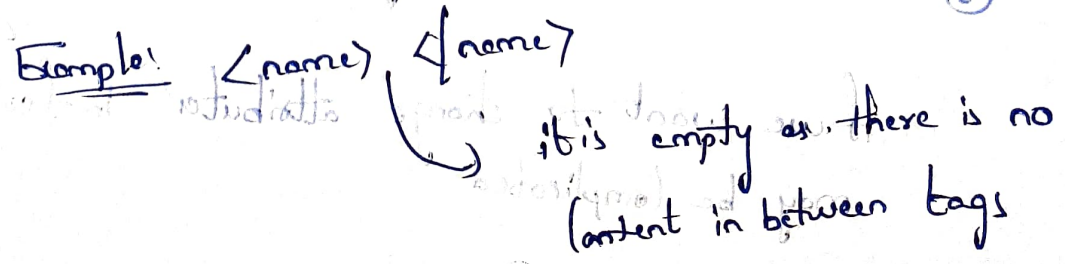 Example: <name> </name>
it is empty as there is no
Content in between tags